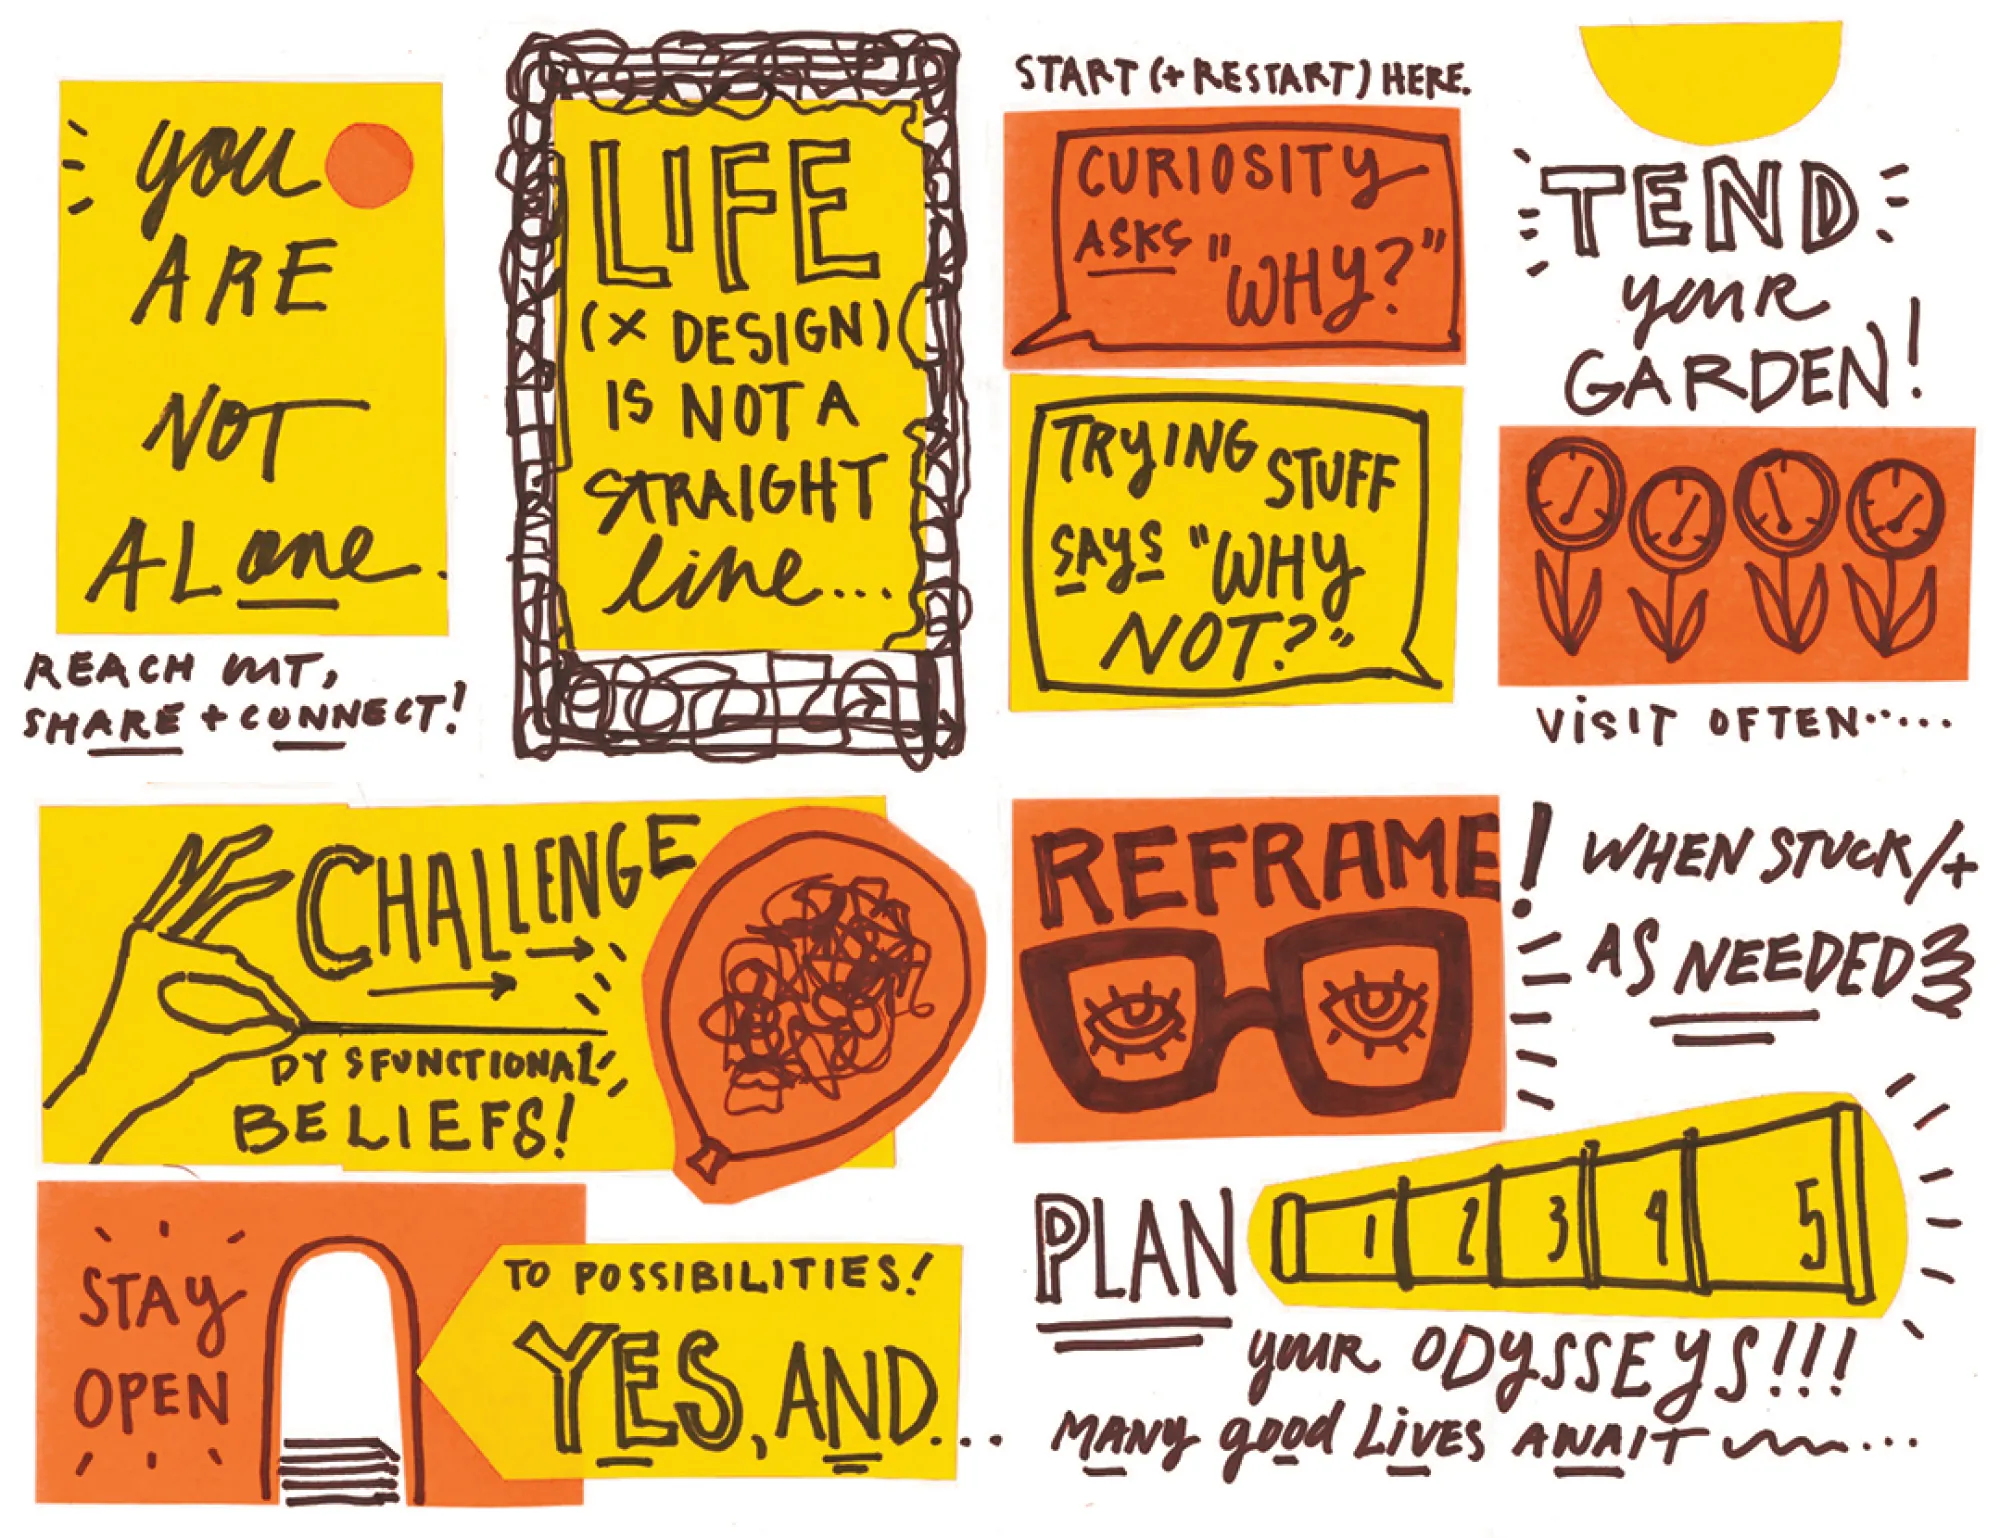 you
ARE
NOT
ALone.
REACH OUT,
SHARE + CONNECT!
LIFE
(x DESIGN)
IS NOT A
STRAIGHT
line...
START (+ RESTART) HERE.
CURIOSITY
ASKS "WHY?"
TRYING STUFF
SAYS "WHY
NOT?"
TEND
youR
GARDEN!
VISIT OFTEN.....
CHALLENGE
DYSFUNCTIONAL
BELIEFS!
REFRAME!
WHEN STUCK/+
AS NEEDED
STAY
OPEN
TO POSSIBILITIES!
YES, AND...
PLAN
1 2 3 4 5
youR ODYSSEYS!!!
MANY good LiVES AWAIT ...